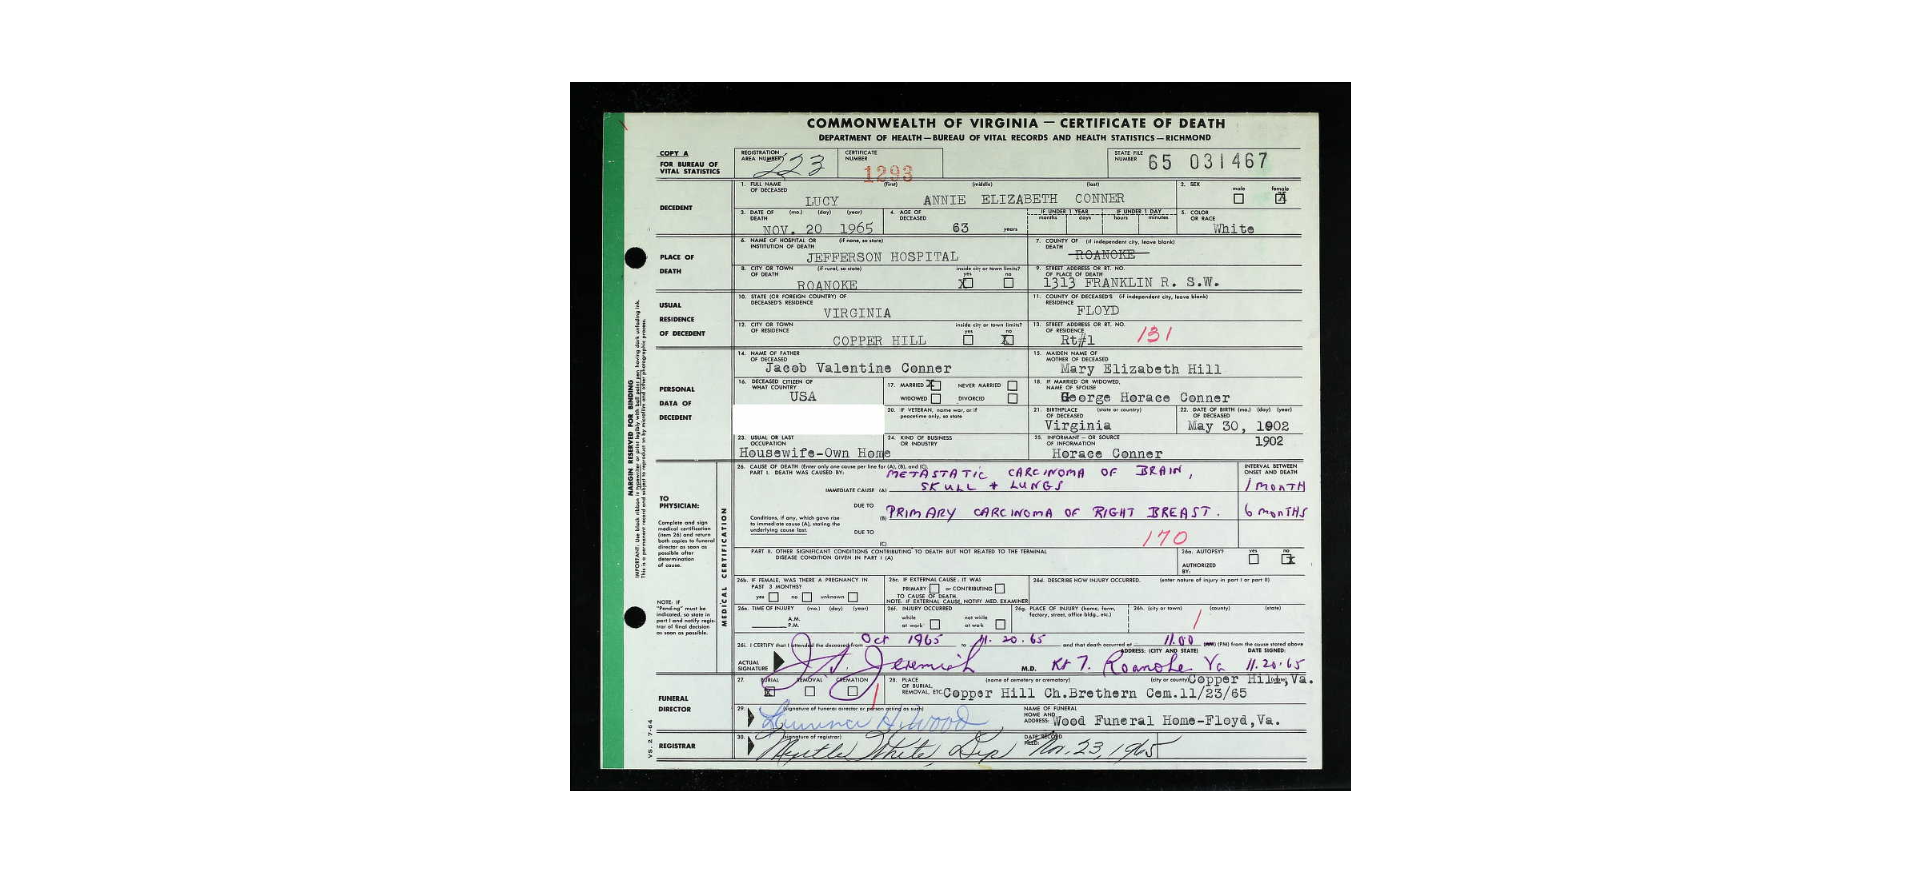 COMMONWEALTH OF VIRGINIA — CERTIFICATE OF DEATH
DEPARTMENT OF HEALTH—BUREAU OF VITAL RECORDS AND HEALTH STATISTICS—RICHMOND
COPY A
FOR BUREAU OF VITAL STATISTICS
REGISTRATION AREA NUMBER 223
CERTIFICATE NUMBER 1293
STATE FILE NUMBER 65 031467
DECEDENT
1. FULL NAME OF DECEASED (first) (middle) (last)
LUCY ANNIE ELIZABETH CONNER
2. SEX male female X
3. DATE OF DEATH (mo.) (day) (year)
NOV. 20 1965
4. AGE OF DECEASED 63 years
IF UNDER 1 YEAR months days
IF UNDER 1 DAY hours minutes
5. COLOR OR RACE
White
PLACE OF DEATH
6. NAME OF HOSPITAL OR INSTITUTION OF DEATH (if none, so state)
JEFFERSON HOSPITAL
7. COUNTY OF DEATH (if independent city, leave blank)
ROANOKE
8. CITY OR TOWN OF DEATH (if rural, so state)
ROANOKE
inside city or town limits? yes X no
9. STREET ADDRESS OR RT. NO. OF PLACE OF DEATH
1313 FRANKLIN R. S.W.
USUAL RESIDENCE OF DECEDENT
10. STATE (OR FOREIGN COUNTRY) OF DECEASED'S RESIDENCE
VIRGINIA
11. COUNTY OF DECEASED'S RESIDENCE (if independent city, leave blank)
FLOYD
12. CITY OR TOWN OF RESIDENCE
COPPER HILL
inside city or town limits? yes no X
13. STREET ADDRESS OR RT. NO. OF RESIDENCE
Rt#1 131
PERSONAL DATA OF DECEDENT
14. NAME OF FATHER OF DECEASED
Jacob Valentine Conner
15. MAIDEN NAME OF MOTHER OF DECEASED
Mary Elizabeth Hill
16. DECEASED CITIZEN OF WHAT COUNTRY
USA
17. MARRIED X NEVER MARRIED
WIDOWED DIVORCED
18. IF MARRIED OR WIDOWED, NAME OF SPOUSE
George Horace Conner
20. IF VETERAN, name war, or if peacetime only, so state
21. BIRTHPLACE OF DECEASED (state or country)
Virginia
22. DATE OF BIRTH (mo.) (day) (year) OF DECEASED
May 30, 1902
1902
23. USUAL OR LAST OCCUPATION
Housewife-Own Home
24. KIND OF BUSINESS OR INDUSTRY
25. INFORMANT — OR SOURCE OF INFORMATION
Horace Conner
TO PHYSICIAN:
Complete and sign medical certification (item 26) and return both copies to funeral director as soon as possible after determination of cause.
NOTE: IF "Pending" must be indicated, so state in part I and notify registrar of final decision as soon as possible.
MEDICAL CERTIFICATION
26. CAUSE OF DEATH (Enter only one cause per line for (A), (B), and (C).
PART I. DEATH WAS CAUSED BY:
IMMEDIATE CAUSE (A)
METASTATIC CARCINOMA OF BRAIN,
SKULL + LUNGS
INTERVAL BETWEEN ONSET AND DEATH
1 MONTH
DUE TO
(B) PRIMARY CARCINOMA OF RIGHT BREAST. 6 MONTHS
Conditions, if any, which gave rise to immediate cause (A), stating the underlying cause last.
DUE TO
(C)
170
PART II. OTHER SIGNIFICANT CONDITIONS CONTRIBUTING TO DEATH BUT NOT RELATED TO THE TERMINAL DISEASE CONDITION GIVEN IN PART I (A)
26a. AUTOPSY? yes no X
AUTHORIZED BY:
26b. IF FEMALE, WAS THERE A PREGNANCY IN PAST 3 MONTHS?
yes no unknown
26c. IF EXTERNAL CAUSE, IT WAS
PRIMARY or CONTRIBUTING
TO CAUSE OF DEATH
NOTE: IF EXTERNAL CAUSE, NOTIFY MED. EXAMINER
26d. DESCRIBE HOW INJURY OCCURRED. (enter nature of injury in part I or part II)
26e. TIME OF INJURY (mo.) (day) (year)
A.M.
P.M.
26f. INJURY OCCURRED
while at work not while at work
26g. PLACE OF INJURY (home, farm, factory, street, office bldg., etc.)
26h. (city or town) (county) (state)
26i. I CERTIFY that I attended the deceased from Oct 1965 to 11.20.65 and that death occurred at 11.00 (PM) from the cause stated above
ACTUAL SIGNATURE Jeremiah M.D.
ADDRESS: (CITY AND STATE) Rt 7. Roanoke Va
DATE SIGNED: 11.20.65
FUNERAL DIRECTOR
27. BURIAL X REMOVAL CREMATION
28. PLACE OF BURIAL, REMOVAL, ETC. (name of cemetery or crematory) (city or county) (state)
Copper Hill Ch.Brethern Cem.11/23/65 Copper Hill,Va.
29. (signature of funeral director or person acting as such)
NAME OF FUNERAL HOME AND ADDRESS: Wood Funeral Home-Floyd,Va.
REGISTRAR
30. (signature of registrar)
Myrtle White, Dep
DATE RECORD FILED: Nov. 23, 1965
MARGIN RESERVED FOR BINDING
VS. 2 7-64